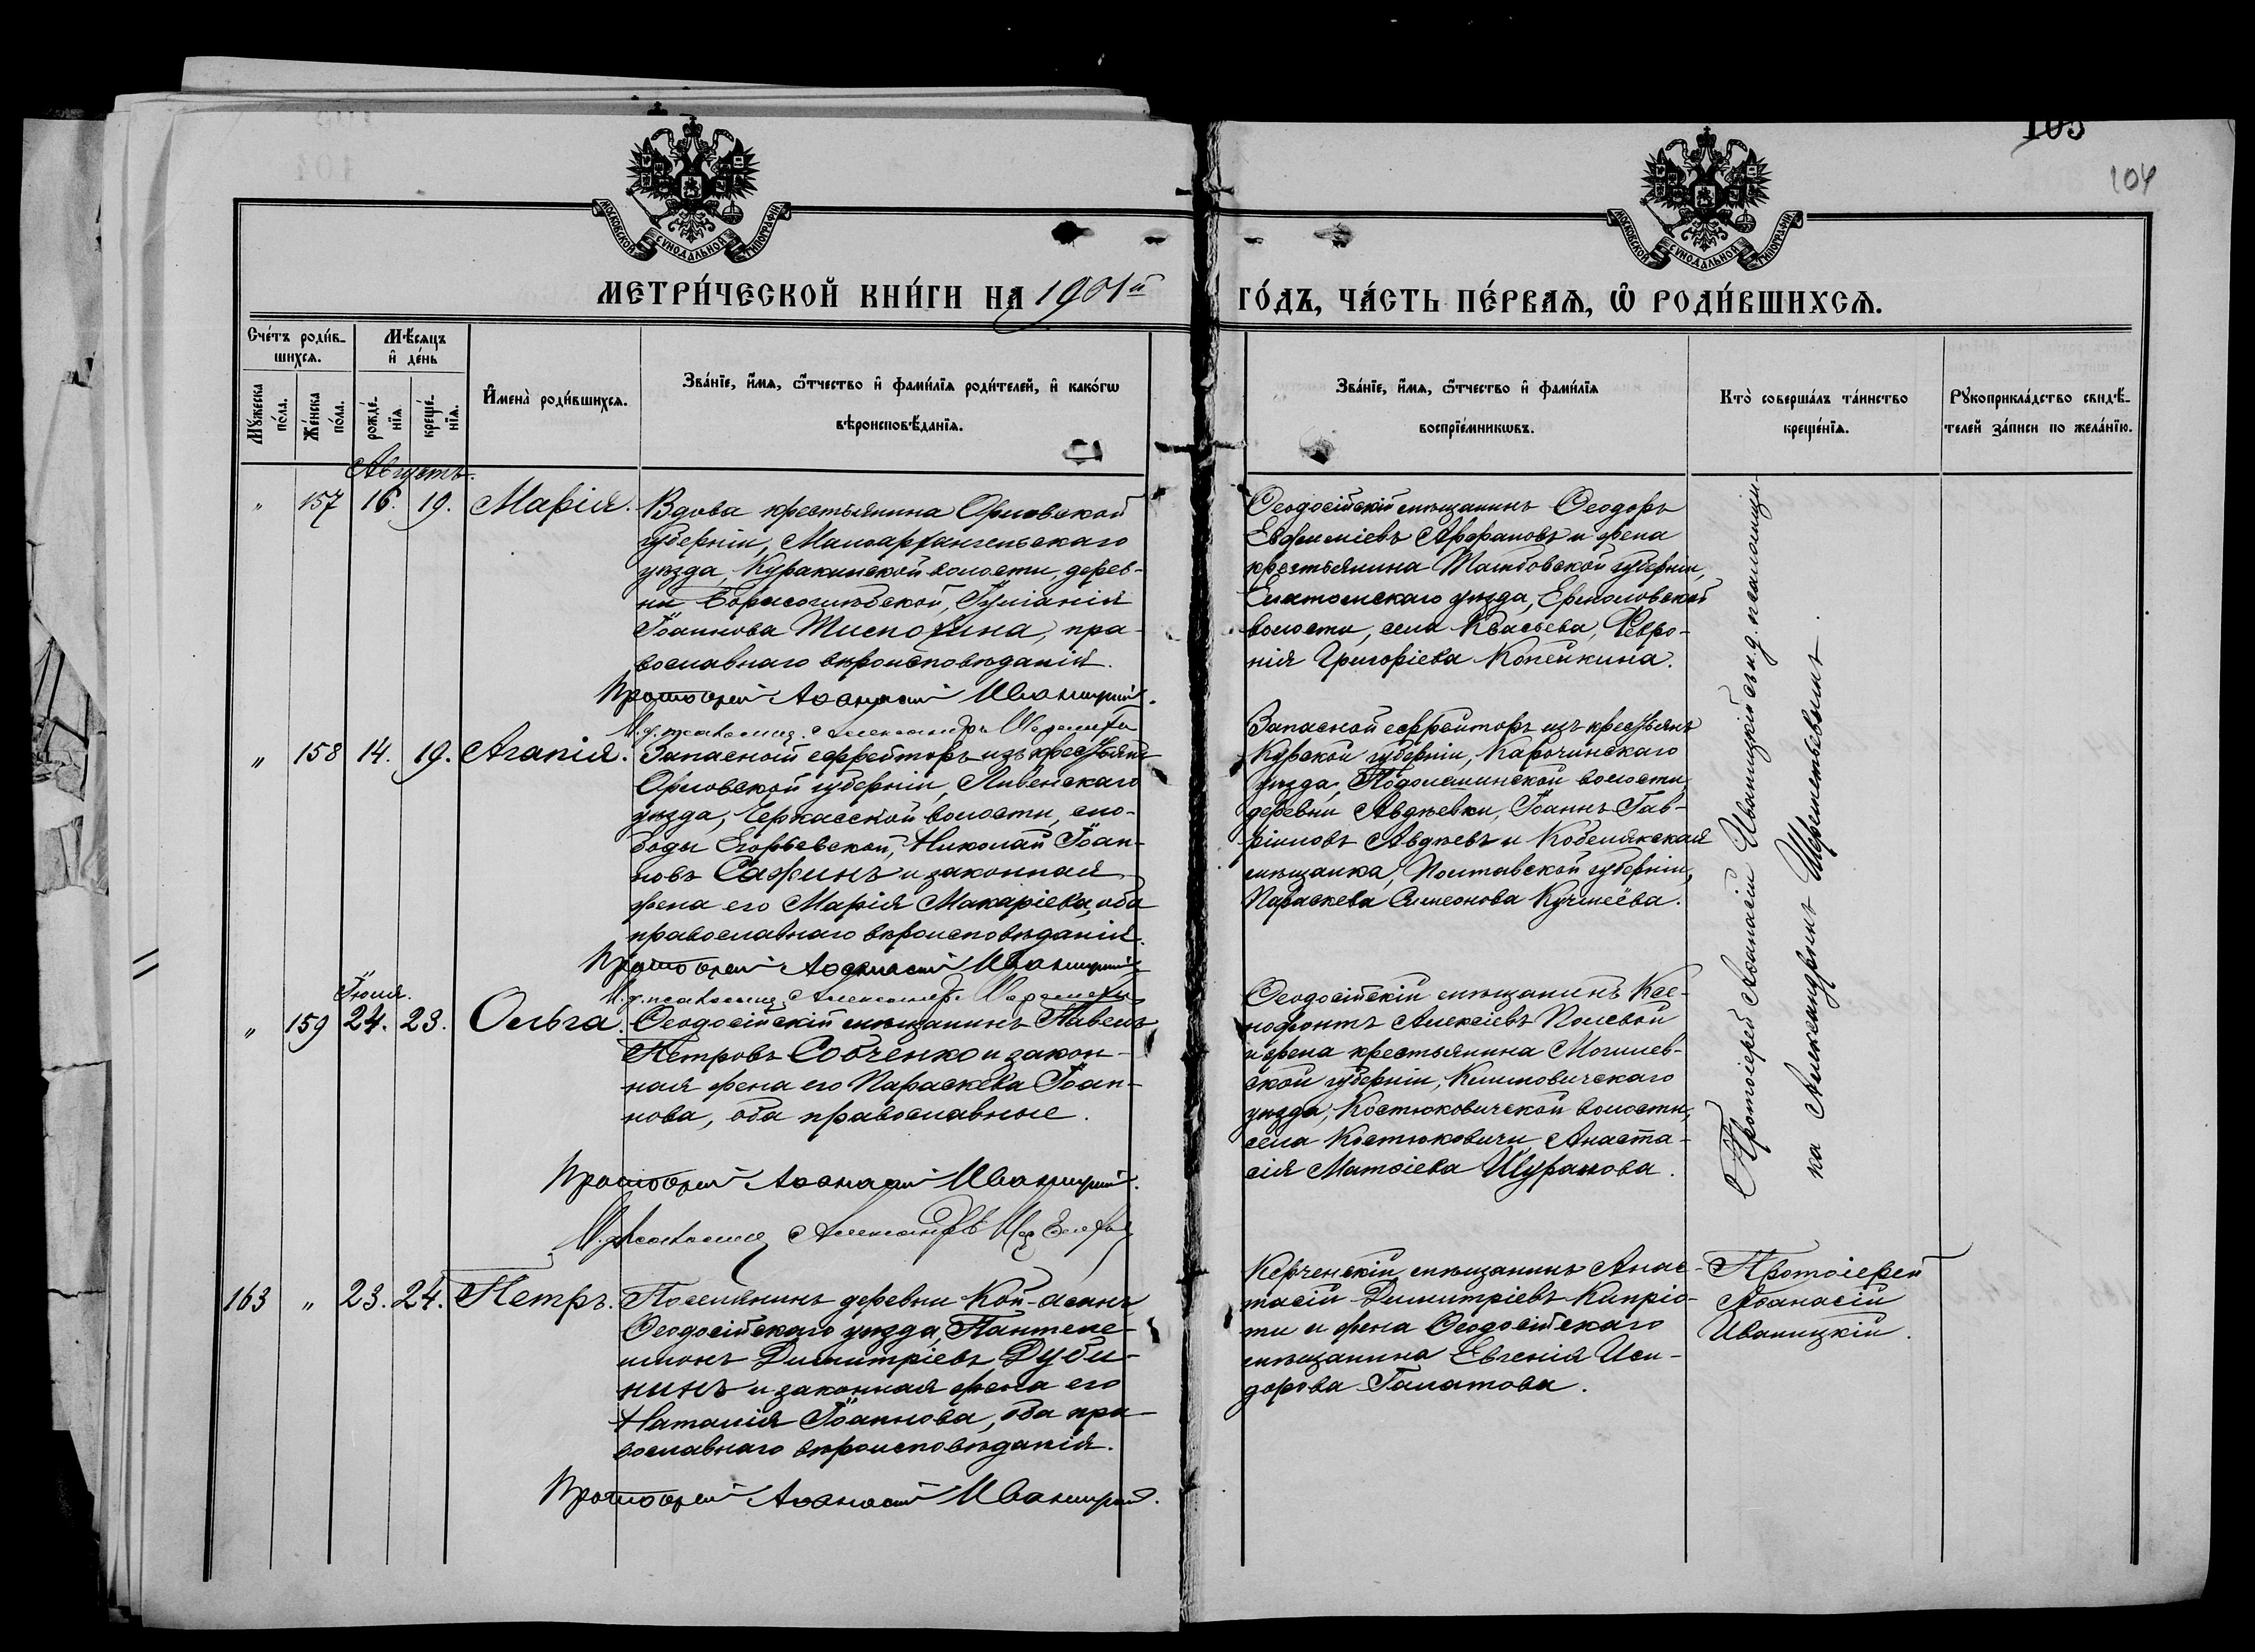 105
104
МОСКОВСКОЙ СѴНОДАЛЬНОЙ ТИПОГРАФІИ
МОСКОВСКОЙ СѴНОДАЛЬНОЙ ТИПОГРАФІИ
МЕТРИ́ЧЕСКОЙ КНИ́ГИ НА 1901й ГО́ДЪ, ЧА́СТЬ ПЕ́РВАѦ, Ѡ҆ РОДИ́ВШИХСѦ.
Сче́тъ роди́в-
шихсѧ.
Мѣ́сѧцъ
и҆ де́нь
Мꙋ́жеска
по́ла.
Же́нска
по́ла.
рожде́-
нїѧ.
креще́-
нїѧ.
И҆мена̀ роди́вшихсѧ.
Зва́нїе, и҆́мѧ, ѻ҆́тчество и҆ фами́лїѧ роди́телей, и҆ како́гѡ
вѣроисповѣ́данїѧ.
Зва́нїе, и҆́мѧ, ѻ҆́тчество и҆ фами́лїѧ
воспрїе́мникѡвъ.
Кто̀ соверша́лъ та́инство
креще́нїѧ.
Рꙋкоприкла́дство свидѣ́-
телей за́писи по жела́нїю.
Августъ.
" 157 16. 19. Марія.
Вдова крестьянина Орловской
губерніи, Малоархангельскаго
уѣзда, Куракинской волости, дерев-
ни Борисоглѣбской, Іуліанія
Іоаннова Тиспохина, пра-
вославнаго вѣроисповѣданія.
Протоіерей Аѳанасій Иваницкій.
И. д. псаломщ. Александръ Шереметьев
Ѳеодосійскій мѣщанинъ Ѳеодоръ
Евфиміевъ Афраповъ и жена
крестьянина Тамбовской губерніи,
Елатомскаго уѣзда, Ермоловской
волости, села Квасьева, Февро-
нія Григоріева Копейкина.
" 158 14. 19. Агапія.
Запасной ефрейторъ изъ крестьянъ
Орловской губерніи, Ливенскаго
уѣзда, Черкасской волости, сло-
боды Егорьевской, Николай Іоан-
новъ Сафинъ и законная
жена его Марія Макаріева, оба
православнаго вѣроисповѣданія.
Протоіерей Аѳанасій Иваницкій.
И. д. псаломщ. Александръ Шереметьев
Запасной ефрейторъ изъ крестьянъ
Курской губерніи, Карочинскаго
уѣзда, волости,
деревни Авдѣевки, Іоаннъ Гав-
ріиловъ Авдѣевъ и Кобелякская
мѣщанка, Полтавской губерніи,
Параскева Симеонова Кучмеёва.
Іюля.
" 159 24. 23. Ольга.
Ѳеодосійскій мѣщанинъ Павелъ
Петровъ Собченко и закон-
ная жена его Параскева Іоан-
нова, оба православные.
Протоіерей Аѳанасій Иваницкій.
И. д. псаломщ. Александръ
Ѳеодосійскій мѣщанинъ Ксе-
нофонтъ Алексіевъ Полевой
и жена крестьянина Могилев-
ской губерніи, Климовичскаго
уѣзда, Костюковичской волости,
села Костюковичи, Анаста-
сія Матѳіева Шуракова.
Протоіерей Аѳанасій Иваницкій съ и. д. псаломщи-
ка Александромъ Шереметьевымъ.
163 " 23. 24. Петръ.
Поселянинъ деревни Кой-асанъ
Ѳеодосійскаго уѣзда, Пантеле-
имонъ Димитріевъ Дуби-
нинъ и законная жена его
Наталія Іоаннова, оба пра-
вославнаго вѣроисповѣданія.
Протоіерей Аѳанасій Иваницкій.
Керченскій мѣщанинъ Анас-
тасій Димитріевъ Капріо-
ти и жена Ѳеодосійскаго
мѣщанина Евгенія Иси-
дорова Галатова.
Протоіерей
Аѳанасій
Иваницкій.